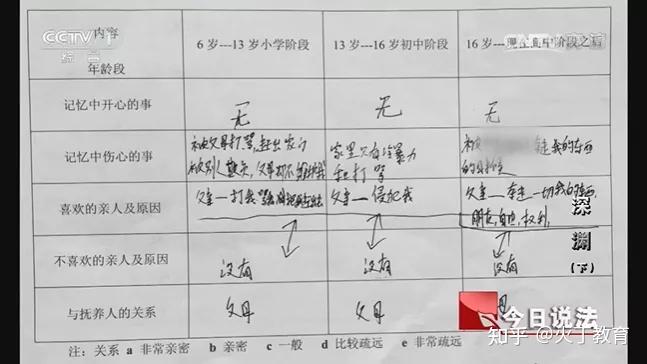 CCTV 1
综合
内容
年龄段
6 岁---13 岁小学阶段
13 岁---16 岁初中阶段
16 岁---现在高中阶段之后
记忆中开心的事
无
无
无
记忆中伤心的事
被父母打骂,赶出家门
被别人欺负,父母却不维护我
家里只有冷暴力
和打骂
被
走我的东西
喜欢的亲人及原因
父亲—打我
父亲—侵犯我
父亲—夺走一切我的东西
朋友,自由,权利
不喜欢的亲人及原因
没有
没有
没有
与抚养人的关系
父母
父母
母
注:关系 a 非常亲密 b 亲密 c 一般 d 比较疏远 e 非常疏远
深渊
(下)
今日说法
知乎 @火丁教育